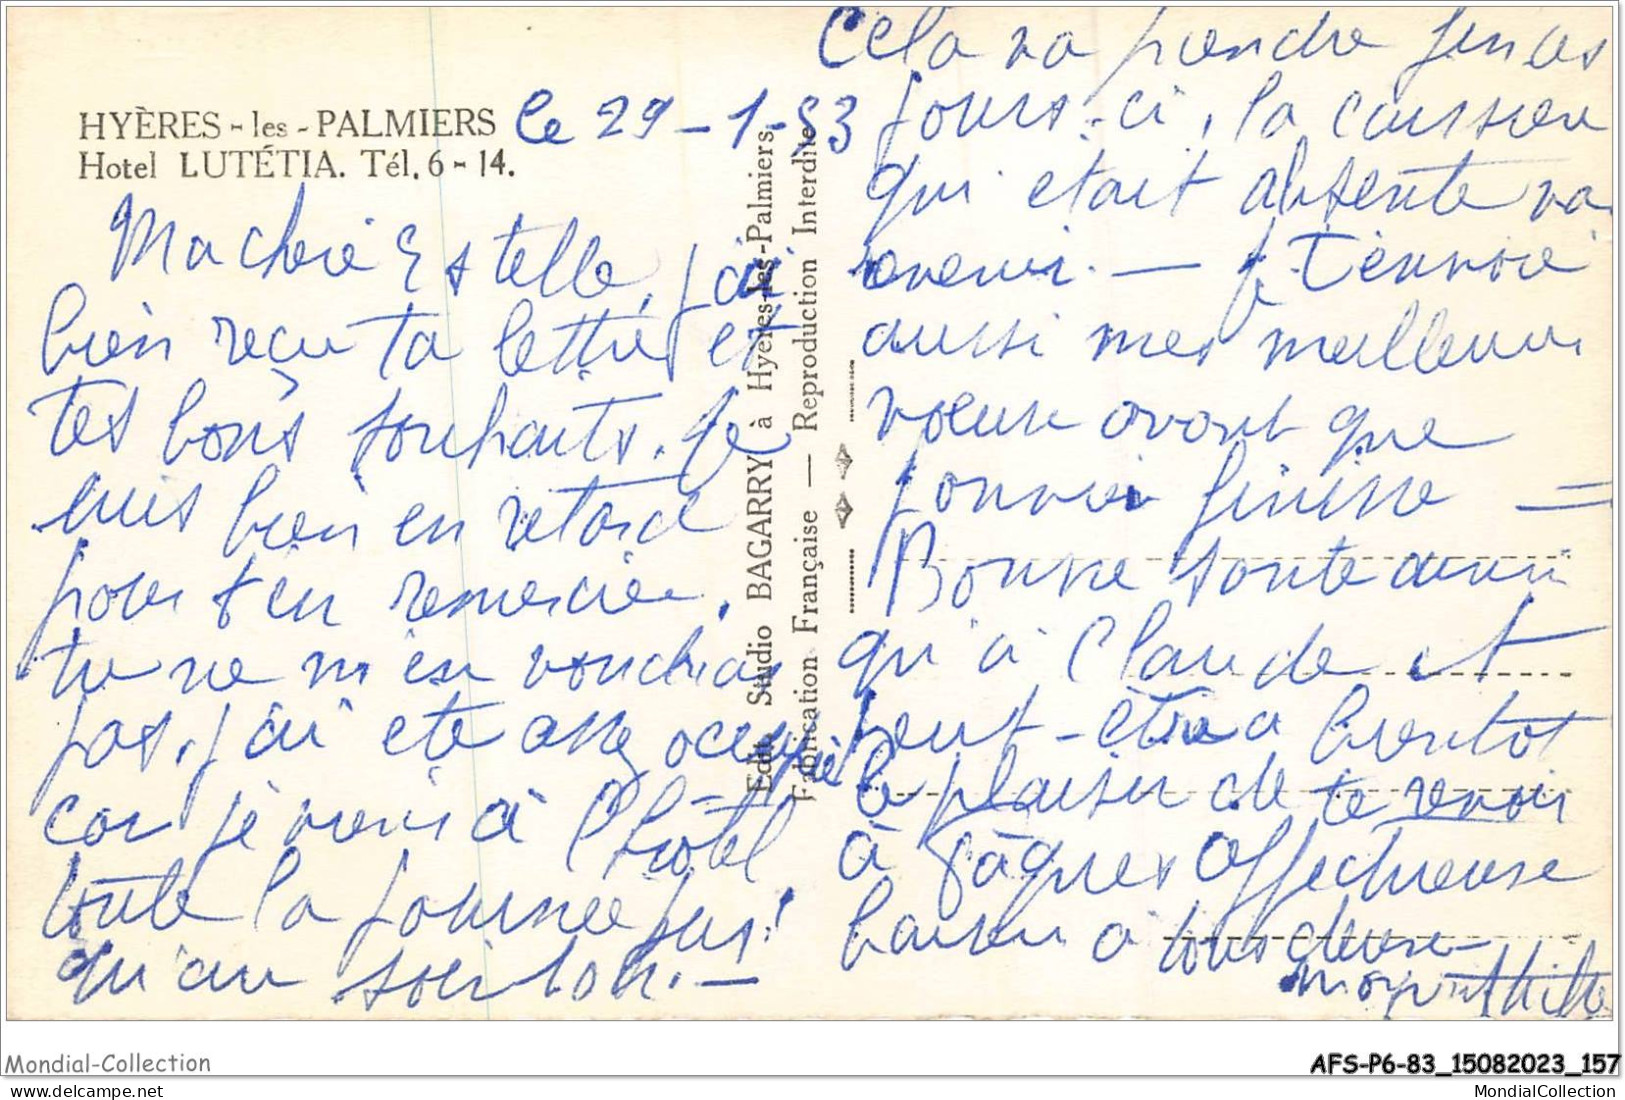 HYÈRES - les - PALMIERS
Hotel LUTÉTIA. Tél. 6 - 14.
le 29-1-53
Ma chère Estelle, j'ai
bien reçu ta lettre et
tes bons souhaits. Je
suis bien en retard
pour t'en remercier,
tu ne m'en voudras
pas, j'ai été assez occupée
car je viens à l'hotel
toute la journée jus
qu'au soir 10h. —
Edit. Studio BAGARRY à Hyères-les-Palmiers.
Fabrication Française — Reproduction Interdite
Cela va prendre fin ces
jours-ci, la caissière
qui etait absente va
revenir. — Je t'envoie
aussi mes meilleurs
voeux avant que
janvier finisse =
Bonne santé ainsi
qu'à Claude et
peut-être à bientot
le plaisir de te revoir
à Pâques Affectueuse
baisers à tous deux —
Mondial-Collection
AFS-P6-83_15082023_157
MondialCollection